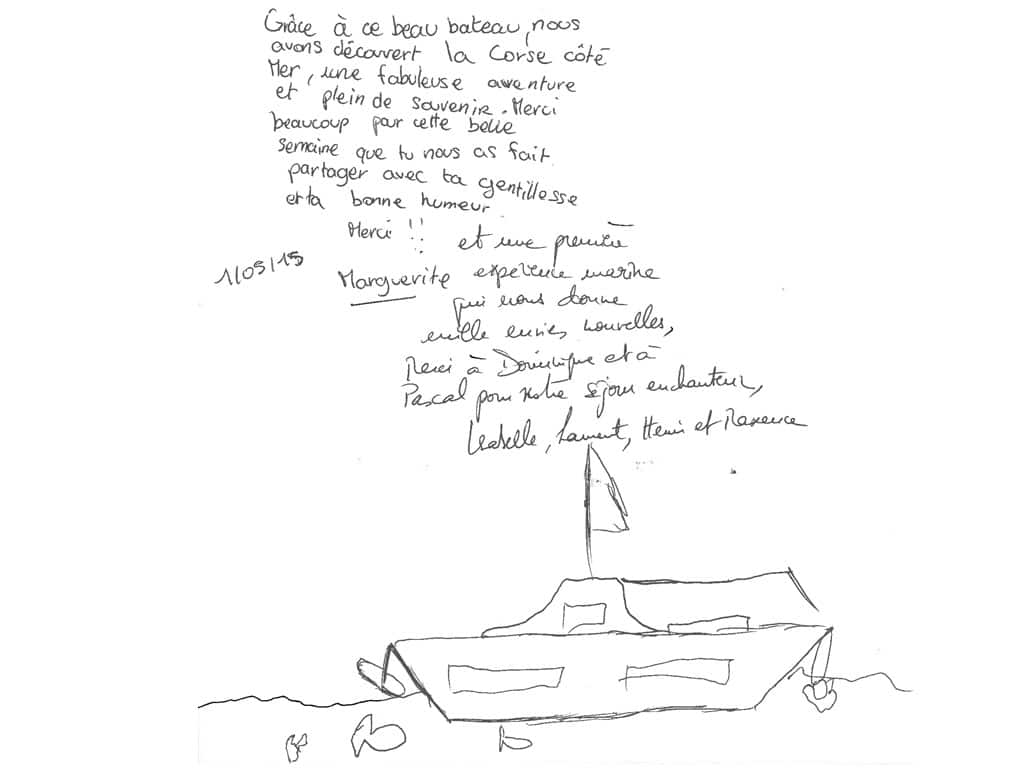 Grâce à ce beau bateau, nous
avons découvert la Corse côté
Mer, une fabuleuse aventure
et plein de souvenir. Merci
beaucoup pour cette belle
semaine que tu nous as fait
partager avec ta gentillesse
et ta bonne humeur
Merci !!
et une première
1/05/15
Marguerite
expérience marine
qui nous donne
mille envies nouvelles,
Merci à Dominique et à
Pascal pour notre séjour enchanteur,
Isabelle, Laurent, Henri et Maxence